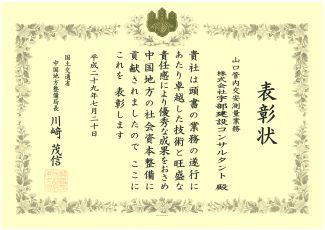 表彰状
山口管内交安測量業務
株式会社宇部建設コンサルタント 殿
貴社は頭書の業務の遂行に
あたり卓越した技術と旺盛な
責任感により優秀な成果をおさめ
中国地方の社会資本整備に
貢献されましたので ここに
これを 表彰します
平成二十九年七月二十日
国土交通省
中国地方整備局長 川﨑 茂信